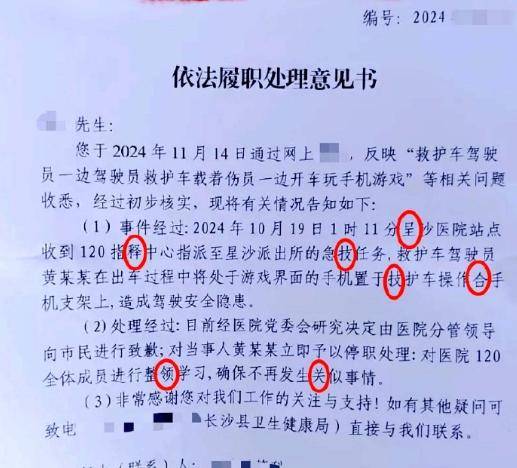 编号：2024
依法履职处理意见书
先生：
您于2024年11月14日通过网上，反映“救护车驾驶
员一边驾驶员救护车载着伤员一边开车玩手机游戏”等相关问题
收悉，经过初步核实，现将有关情况告知如下：
（1）事件经过：2024年10月19日1时11分呈沙医院站点
收到120指释中心指派至星沙派出所的急技任务，救护车驾驶员
黄某某在出车过程中将处于游戏界面的手机置于技护车操作合手
机支架上，造成驾驶安全隐患。
（2）处理经过：目前经医院党委会研究决定由医院分管领导
向市民进行致歉；对当事人黄某某立即予以停职处理：对医院120
全体成员进行整领学习，确保不再发生关似事情。
（3）非常感谢您对我们工作的关注与支持！如有其他疑问可
致电 长沙县卫生健康局）直接与我们联系。
（联系）人：